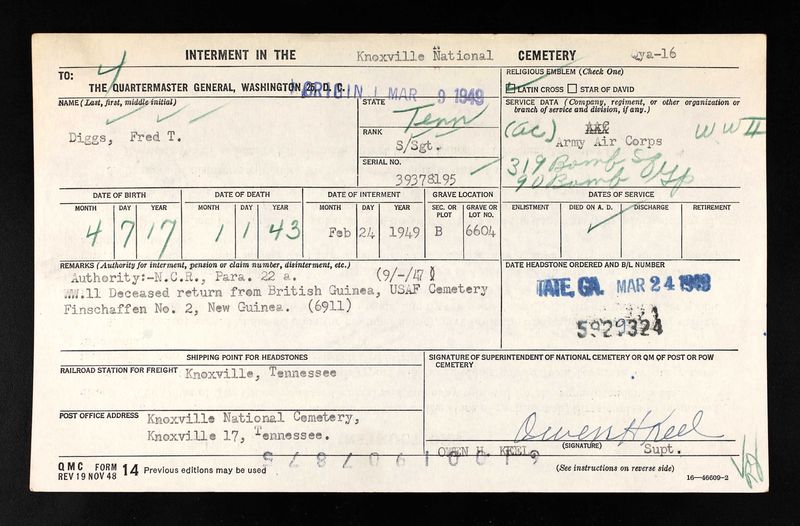 INTERMENT IN THE Knoxville National CEMETERY Qya-16
4
TO:
THE QUARTERMASTER GENERAL, WASHINGTON 25, D. C.
ORIGIN MAR 9 1949
RELIGIOUS EMBLEM (Check One)
LATIN CROSS STAR OF DAVID
NAME (Last, first, middle initial)
Diggs, Fred T.
STATE
Tenn
RANK
S/Sgt.
SERIAL NO.
39378195
SERVICE DATA (Company, regiment, or other organization or
branch of service and division, if any.)
(AC) AAC WW II
Army Air Corps
319 Bomb Sq
90 Bomb Gp
DATE OF BIRTH DATE OF DEATH DATE OF INTERMENT GRAVE LOCATION
MONTH DAY YEAR MONTH DAY YEAR MONTH DAY YEAR SEC. OR PLOT GRAVE OR LOT NO.
4 7 17 1 1 43 Feb 24 1949 B 6604
DATES OF SERVICE
ENLISTMENT DIED ON A. D. DISCHARGE RETIREMENT
REMARKS (Authority for interment, pension or claim number, disinterment, etc.)
Authority:-N.C.R., Para. 22 a. (9/-/47)
WW.11 Deceased return from British Guinea, USAF Cemetery
Finschaffen No. 2, New Guinea. (6911)
DATE HEADSTONE ORDERED AND B/L NUMBER
TATE, GA. MAR 24 1949
5929324
SHIPPING POINT FOR HEADSTONES
RAILROAD STATION FOR FREIGHT Knoxville, Tennessee
POST OFFICE ADDRESS Knoxville National Cemetery,
Knoxville 17, Tennessee.
SIGNATURE OF SUPERINTENDENT OF NATIONAL CEMETERY OR QM OF POST OR POW
CEMETERY
Owen H Keel
OWEN H. KEEL (SIGNATURE) Supt.
QMC FORM 14 Previous editions may be used
REV 19 NOV 48
(See instructions on reverse side)
16—46609-2